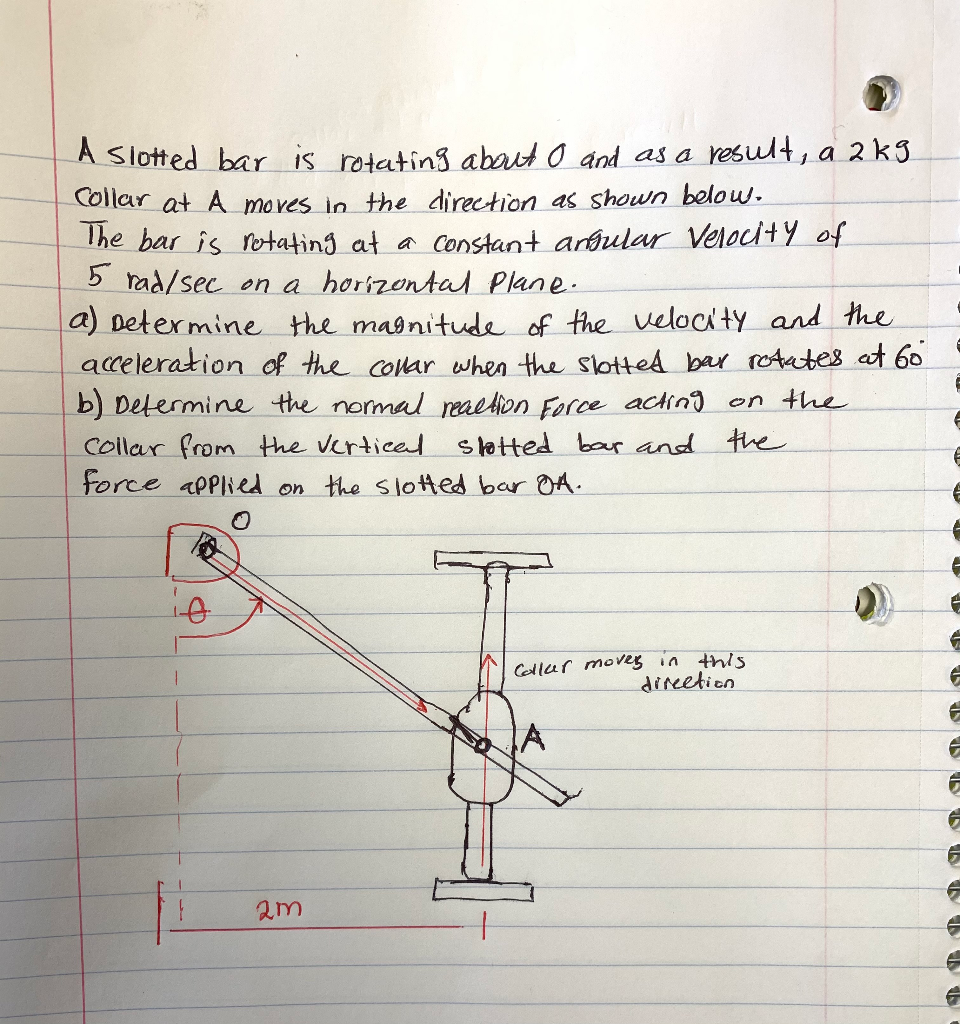 A slotted bar is rotating about O and as a result, a 2kg
collar at A moves in the direction as shown below.
The bar is rotating at a constant angular velocity of
5 rad/sec on a horizontal plane.
a) Determine the magnitude of the velocity and the
acceleration of the collar when the slotted bar rotates at 60°
b) Determine the normal reaction Force acting on the
collar from the vertical slotted bar and the
force applied on the slotted bar OA.
O
θ
collar moves in this
direction
A
2m